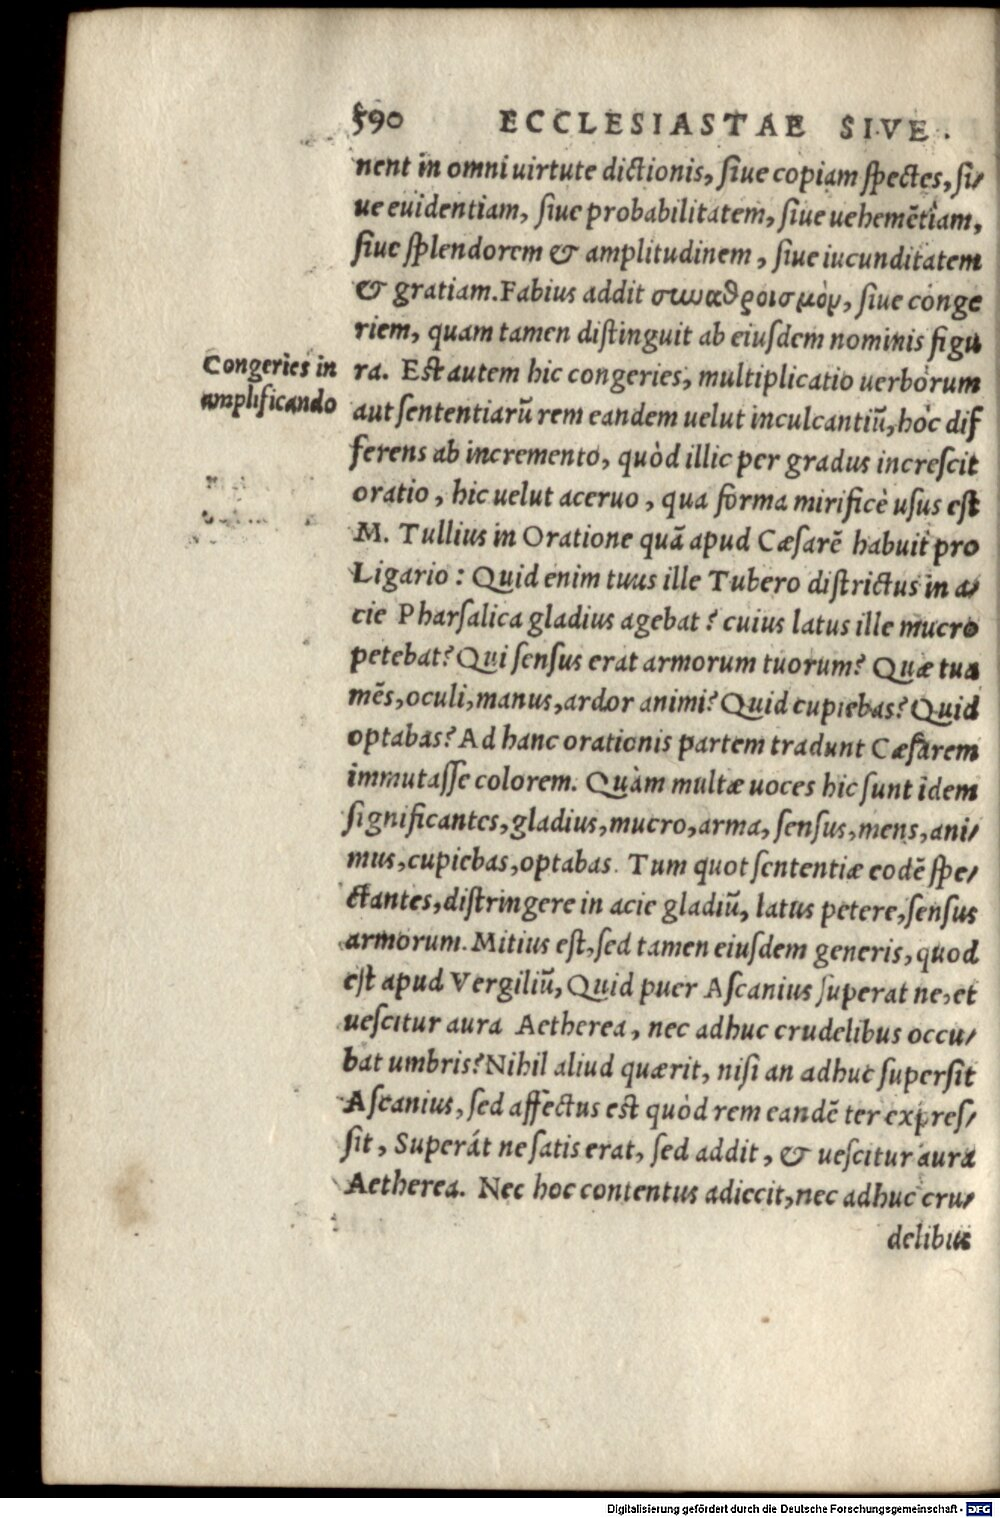 590 ECCLESIASTAE SIVE.
nent in omni uirtute dictionis, ſiue copiam ſpectes, ſi/
ue euidentiam, ſiue probabilitatem, ſiue uehemētiam,
ſiue ſplendorem & amplitudinem, ſiue iucunditatem
& gratiam. Fabius addit συναθροισμὸν, ſiue conge
riem, quam tamen diſtinguit ab eiuſdem nominis figu
Congeries in
amplificando
ra. Est autem hic congeries, multiplicatio uerborum
aut ſententiarū rem eandem uelut inculcantiū, hoc dif
ferens ab incremento, quòd illic per gradus increſcit
oratio, hic uelut aceruo, qua forma mirificè uſus eſt
M. Tullius in Oratione quā apud Cæſarē habuit pro
Ligario: Quid enim tuus ille Tubero diſtrictus in a/
cie Pharſalica gladius agebat? cuius latus ille mucro
petebat? Qui ſenſus erat armorum tuorum? Quæ tua
mēs, oculi, manus, ardor animi? Quid cupiebas? Quid
optabas? Ad hanc orationis partem tradunt Cæſarem
immutaſſe colorem. Quàm multæ uoces hic ſunt idem
ſignificantes, gladius, mucro, arma, ſenſus, mens, ani/
mus, cupiebas, optabas. Tum quot ſententiæ eodē ſpe/
ctantes, diſtringere in acie gladiū, latus petere, ſenſus
armorum. Mitius eſt, ſed tamen eiuſdem generis, quod
eſt apud Vergiliū, Quid puer Aſcanius ſuperat ne, et
ueſcitur aura Aetherea, nec adhuc crudelibus occu/
bat umbris? Nihil aliud quærit, niſi an adhuc ſuperſit
Aſcanius, ſed affectus est quòd rem eandē ter expreſ/
ſit, Superát ne ſatis erat, ſed addit, & ueſcitur aura
Aetherea. Nec hoc contentus adiecit, nec adhuc cru/
delibus
Digitalisierung gefördert durch die Deutsche Forschungsgemeinschaft - DFG